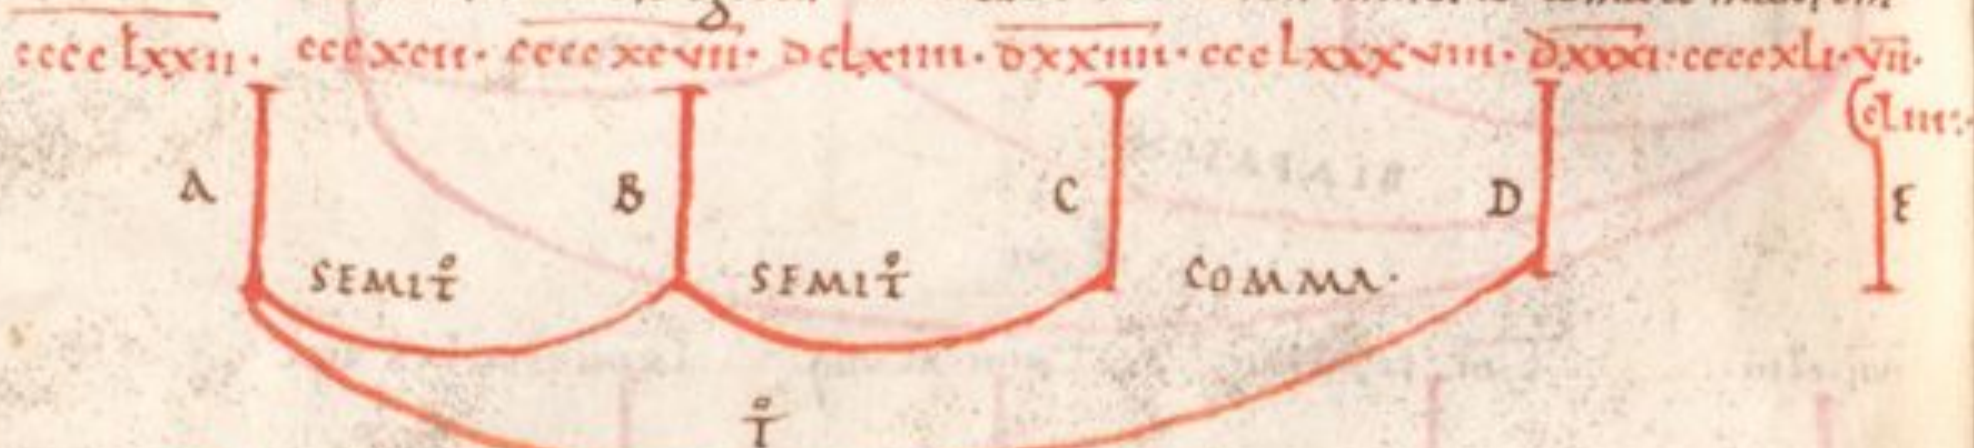 c̅c̅c̅c̅l̅x̅x̅i̅i̅· cccxcii· c̅c̅c̅c̅x̅c̅v̅i̅i̅· dclxiiii· d̅x̅x̅i̅i̅i̅i̅· ccclxxxviii· d̅x̅x̅x̅i̅· ccccxli· v̅i̅i̅·
cliii·
A B C D E
SEMIT̊ SEMIT̊ COMMA·
T̊